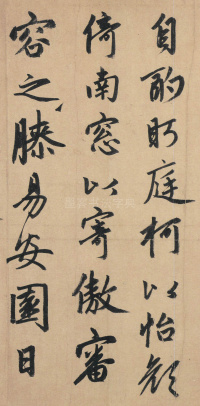 自酌眄庭柯以怡顔
倚南窓以寄傲審
容之膝易安園日